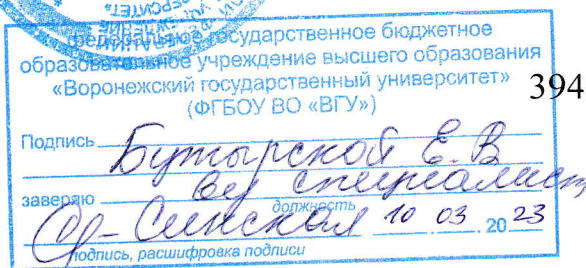 Федеральное государственное бюджетное
образовательное учреждение высшего образования
«Воронежский государственный университет»
(ФГБОУ ВО «ВГУ»)
394
Подпись Бутырской Е.В
заверяю вед специалист
должность
Сенская 10 03 2023
подпись, расшифровка подписи